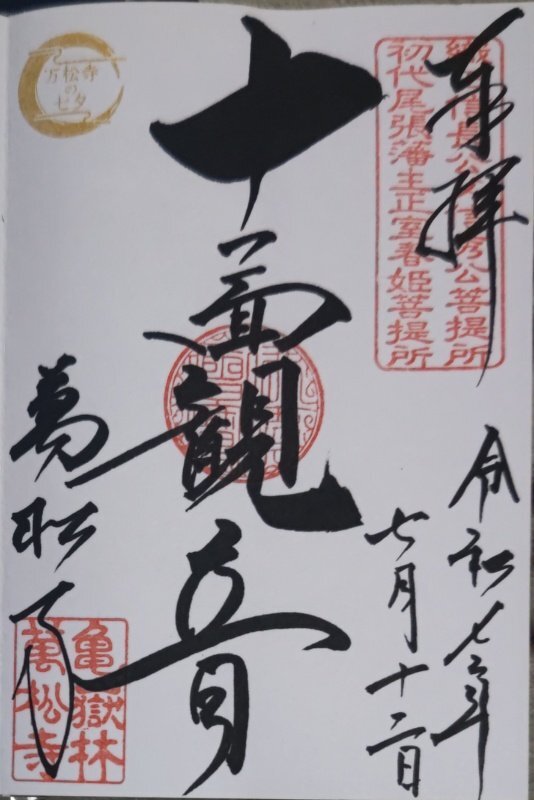 奉拝
織田信長公
秀公菩提所
初代尾張藩主正室春姫菩提所
令和七年
七月十二日
十一面觀音
万松寺
の
七夕
萬松寺
亀嶽林
萬松寺